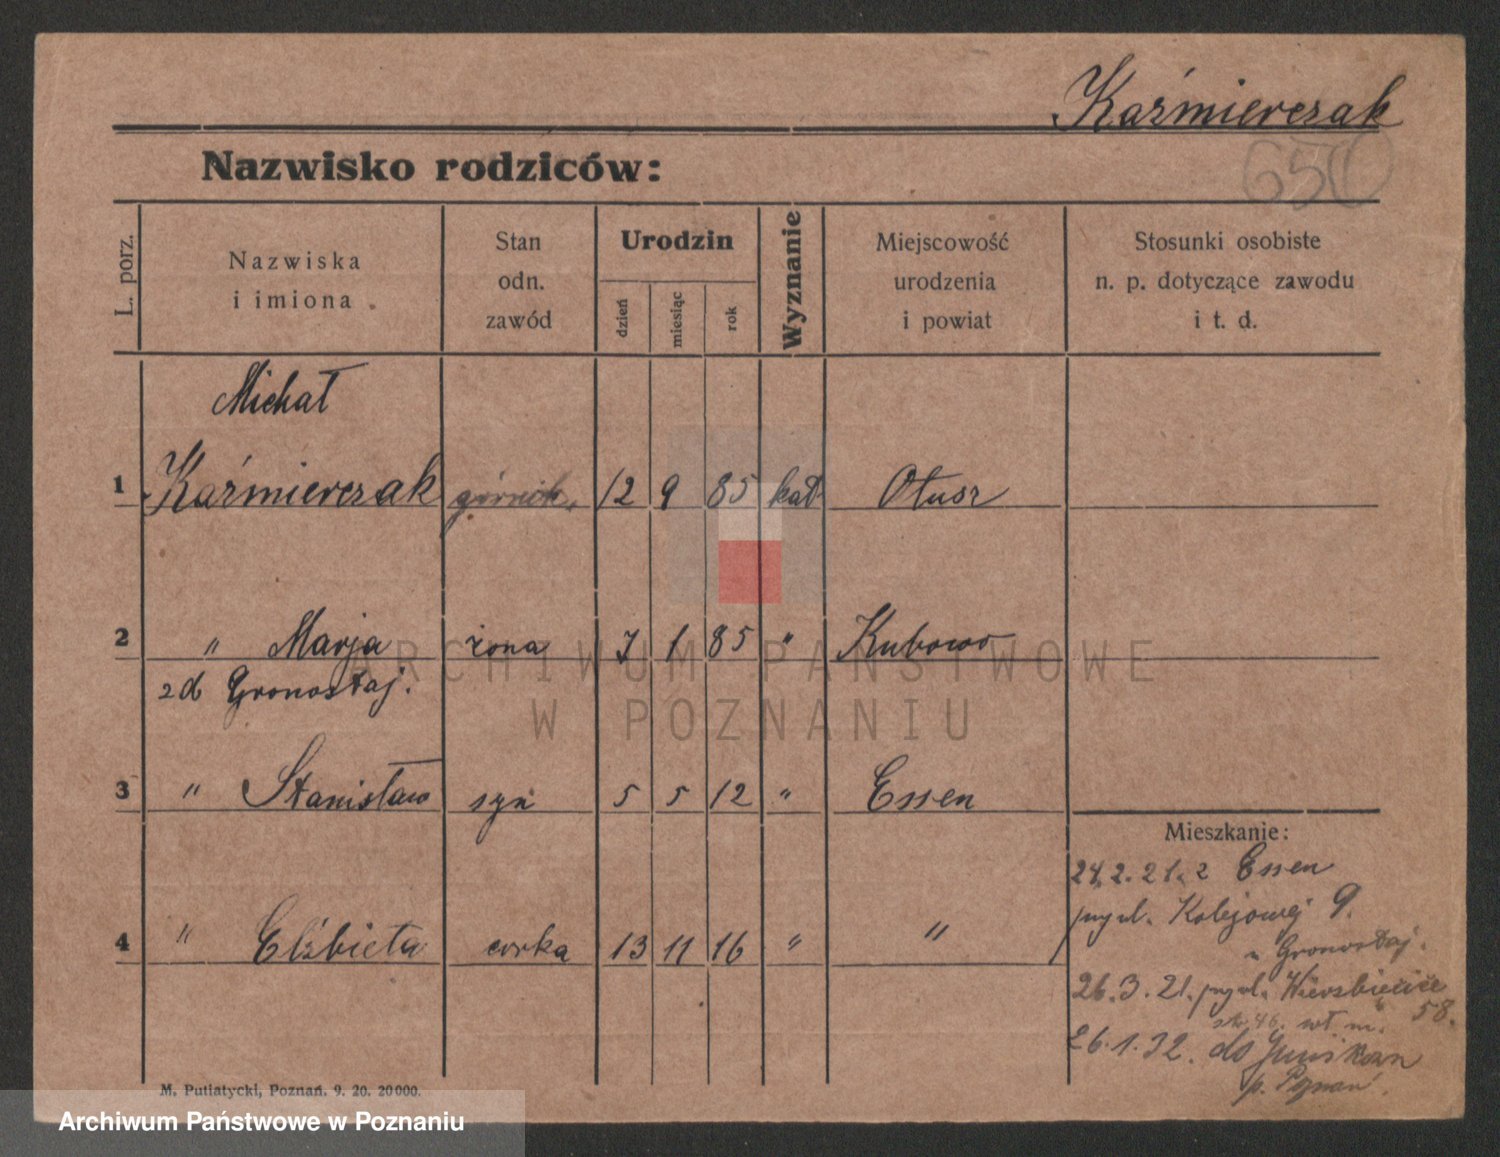 Kaźmierczak
Nazwisko rodziców:
650
L. porz.
Nazwiska
i imiona
Stan
odn.
zawód
Urodzin
dzień
miesiąc
rok
Wyznanie
Miejscowość
urodzenia
i powiat
Stosunki osobiste
n. p. dotyczące zawodu
i t. d.
Michał
1 Kaźmierczak górnik. 12 9 85 kat Otusz
2 " Marja żona 7 1 85 " Kubowo
zd Gronostaj.
3 " Stanisław syn 5 5 12 " Essen
Mieszkanie:
4 " Elżbieta corka 13 11 16 " "
24.2.21. z Essen
przyd. Kolejowej 9.
u Gronostaj.
26.3.21. przyd. Wierzbięcice
58.
wł. m.
26.1.32. do Junikowa
p. Poznań.
M. Putiatycki, Poznań. 9. 20. 20000.
ARCHIWUM PAŃSTWOWE
W POZNANIU
Archiwum Państwowe w Poznaniu